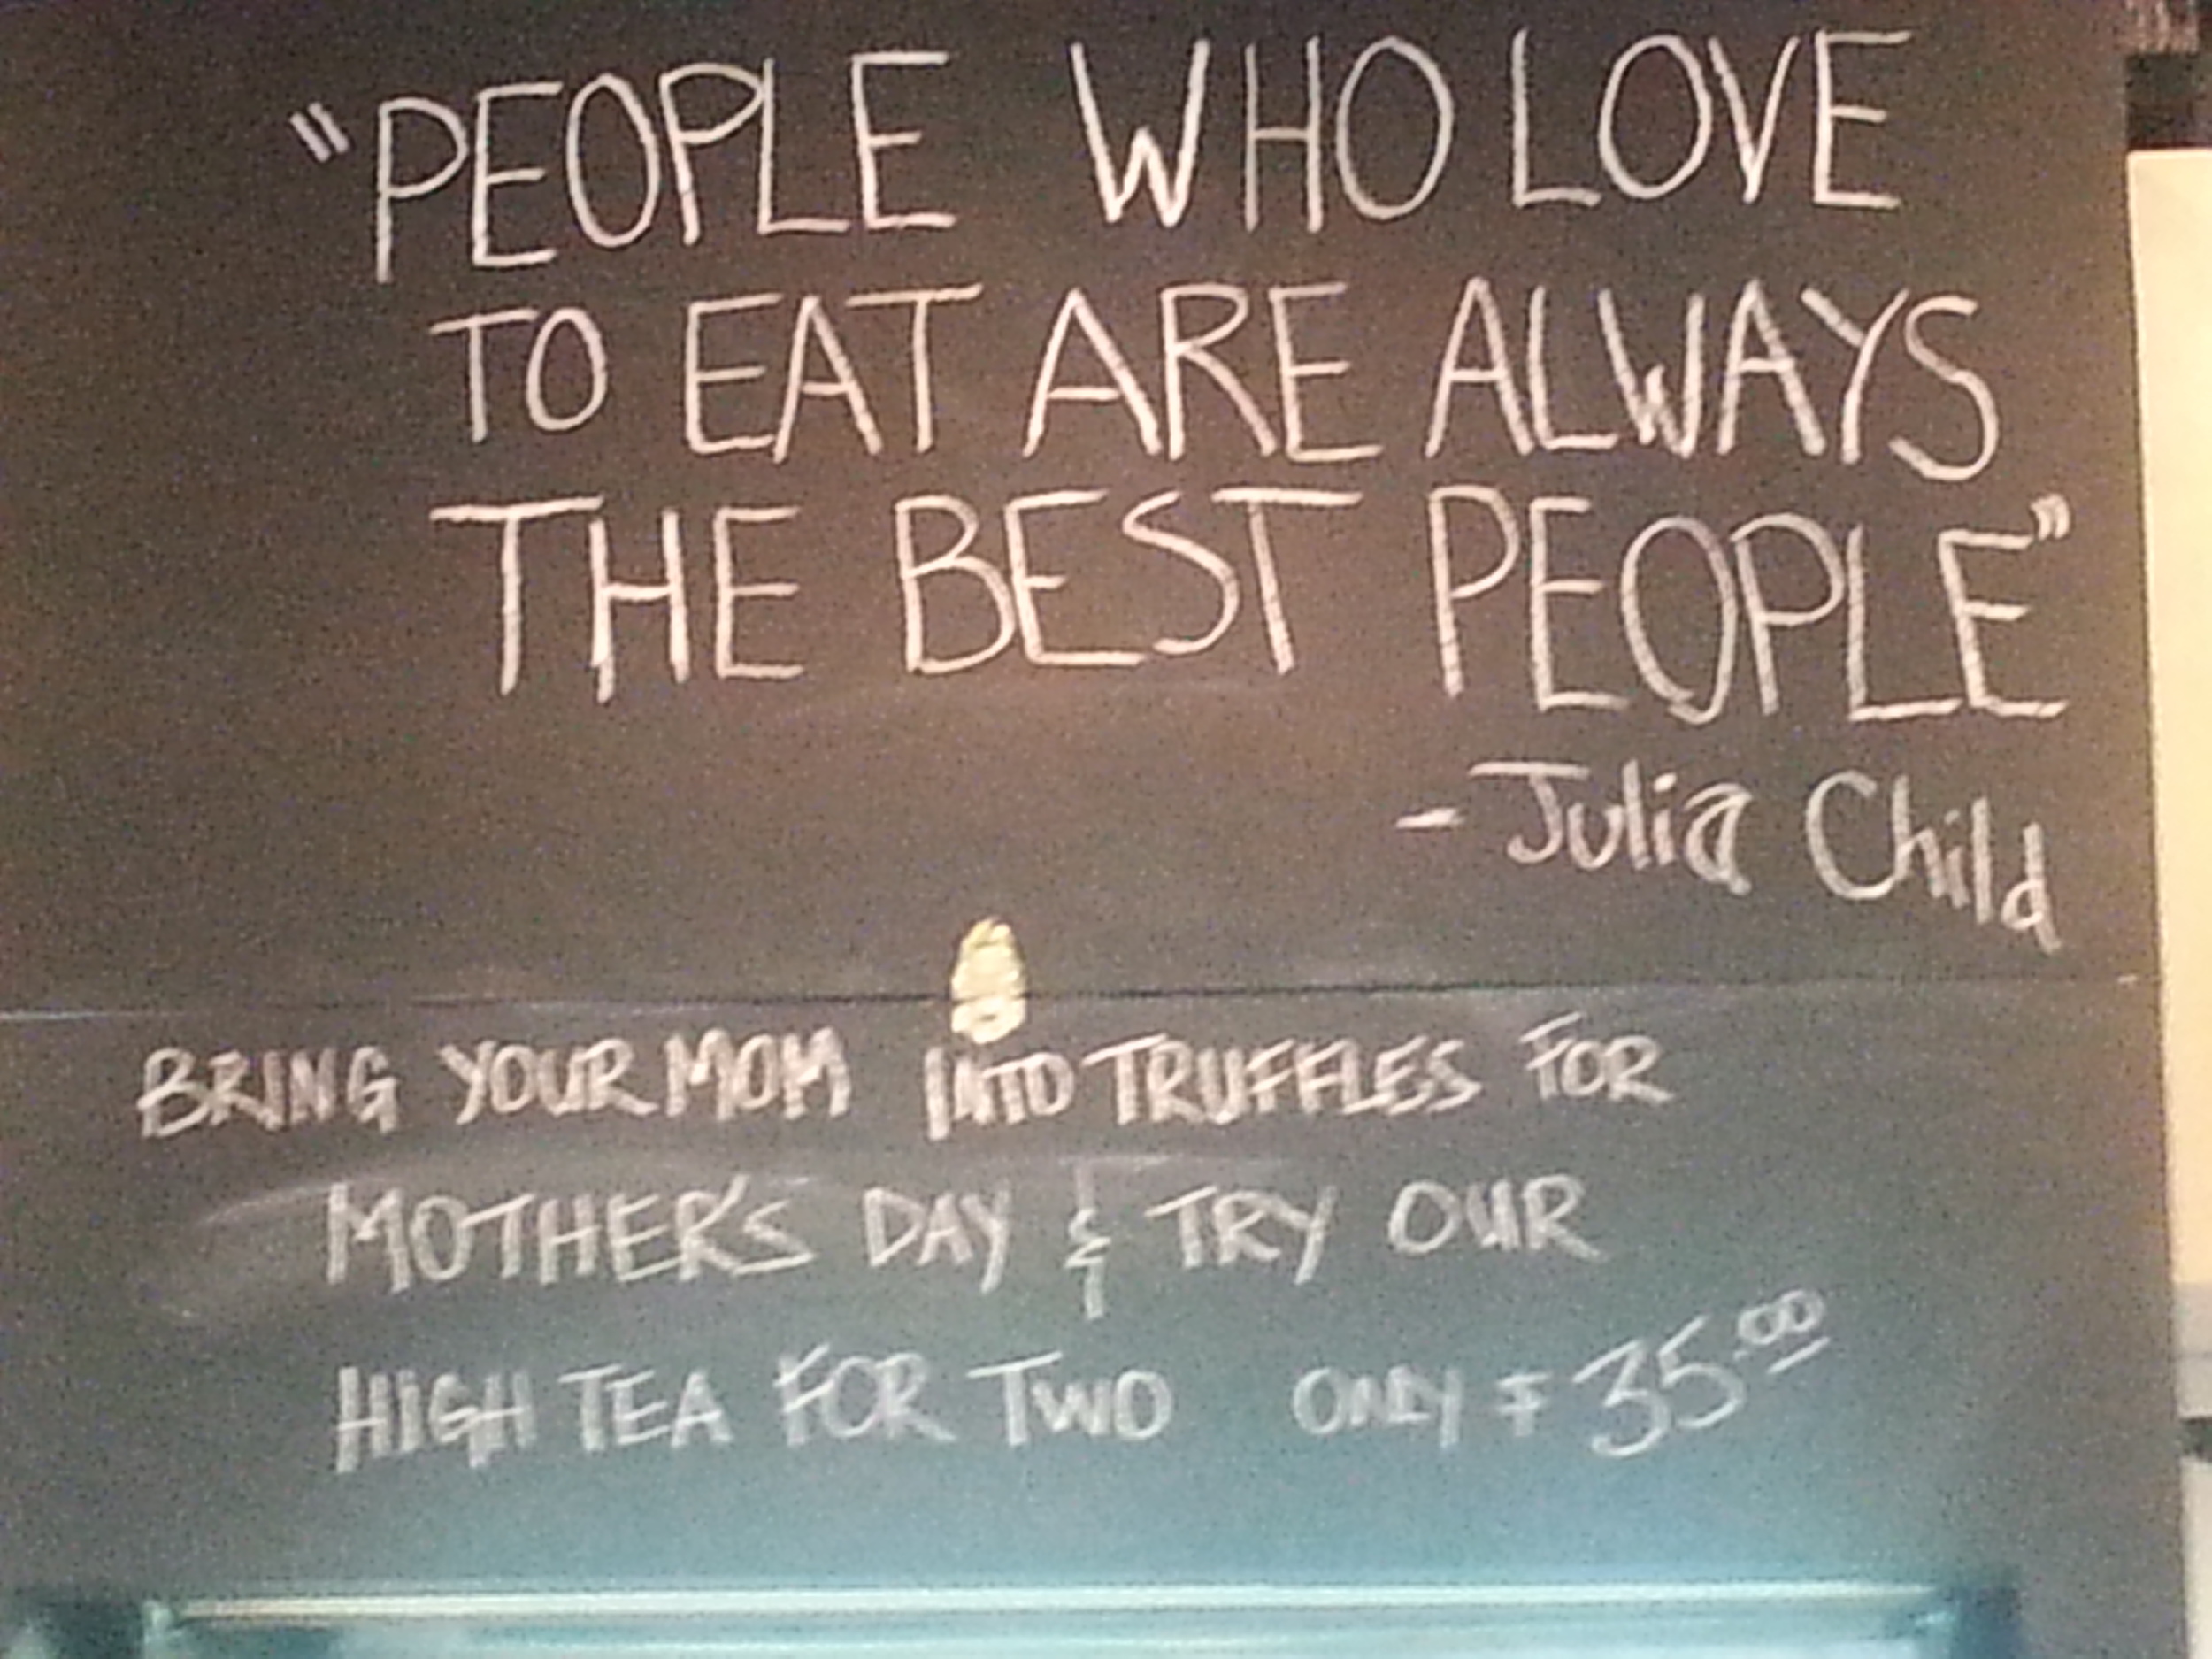 "PEOPLE WHO LOVE
TO EAT ARE ALWAYS
THE BEST PEOPLE"
- Julia Child
BRING YOUR MOM INTO TRUFFLES FOR
MOTHER'S DAY & TRY OUR
HIGH TEA FOR TWO ONLY $35.00